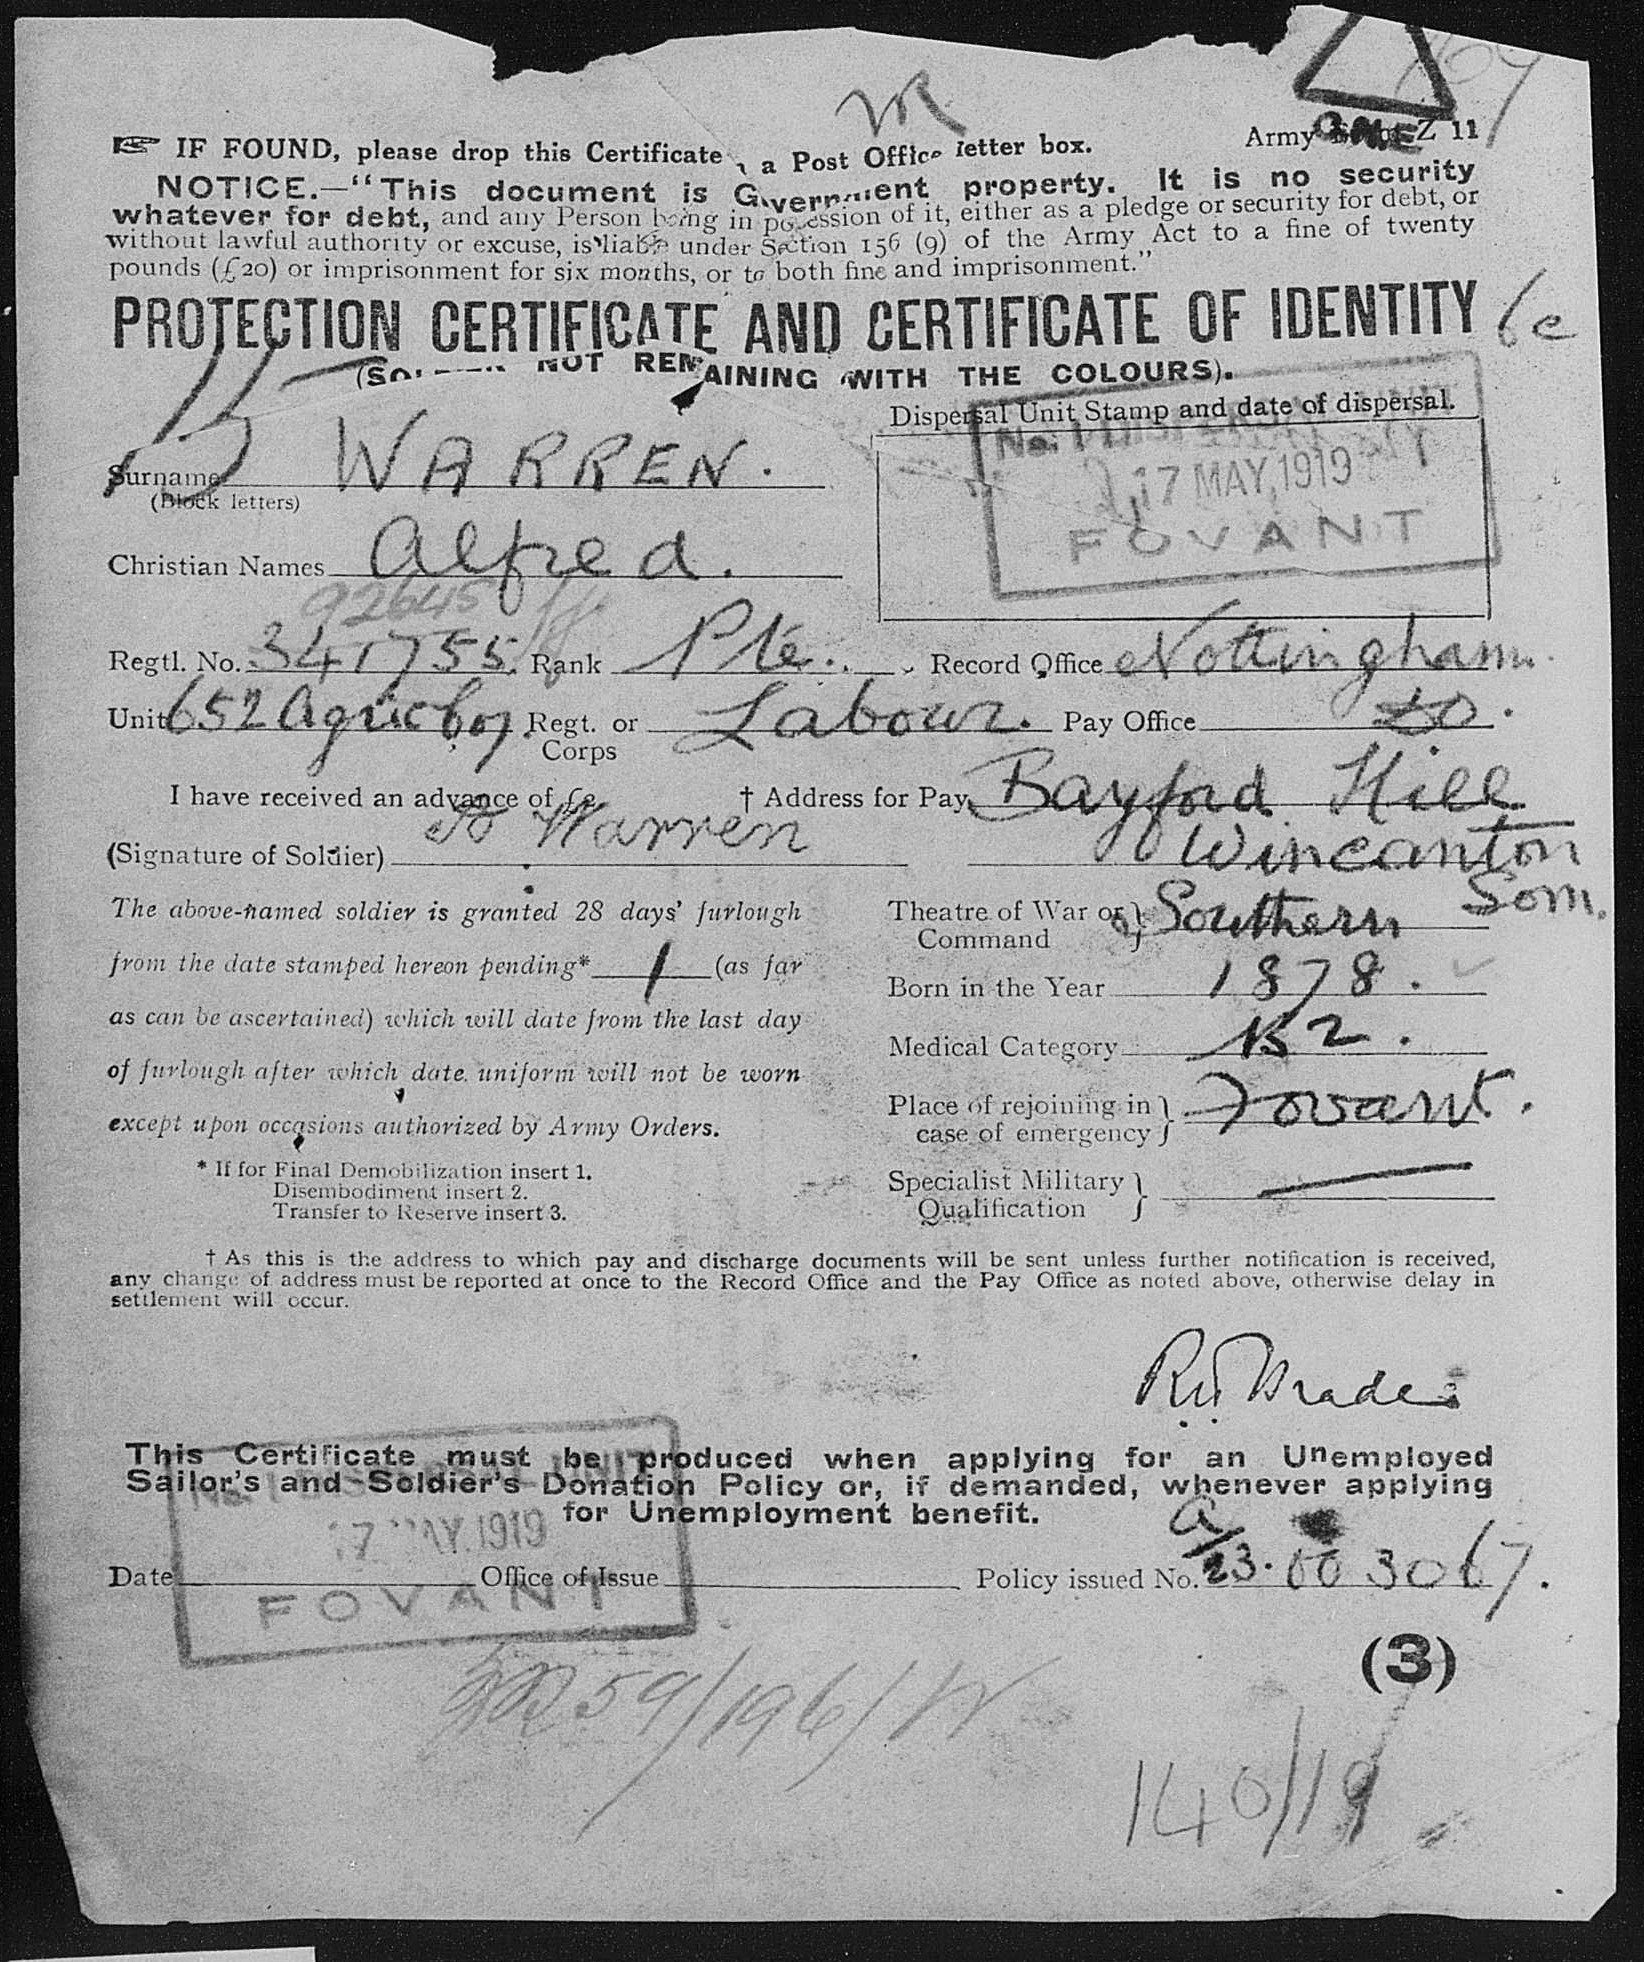 IF FOUND, please drop this Certificate a Post Office letter box.
Army Z 11
NOTICE.—"This document is Government property. It is no security
whatever for debt, and any Person being in possession of it, either as a pledge or security for debt, or
without lawful authority or excuse, is liable under Section 156 (9) of the Army Act to a fine of twenty
pounds (£20) or imprisonment for six months, or to both fine and imprisonment."
PROTECTION CERTIFICATE AND CERTIFICATE OF IDENTITY
(SOLDIER NOT REMAINING WITH THE COLOURS).
Dispersal Unit Stamp and date of dispersal.
17 MAY, 1919
FOVANT
Surname WARREN.
(Block letters)
Christian Names Alfred.
92645
Regtl. No. 341755. Rank Pte. Record Office Nottingham.
Unit 652 Agric Coy. Regt. or Corps Labour. Pay Office do.
I have received an advance of £2
† Address for Pay Bayford Hill
Wincanton
Som.
(Signature of Soldier) A Warren
The above-named soldier is granted 28 days' furlough
from the date stamped hereon pending* 1 (as far
as can be ascertained) which will date from the last day
of furlough after which date uniform will not be worn
except upon occasions authorized by Army Orders.
* If for Final Demobilization insert 1.
Disembodiment insert 2.
Transfer to Reserve insert 3.
Theatre of War or Command } Southern
Born in the Year 1878.
Medical Category B2.
Place of rejoining in case of emergency } Fovant.
Specialist Military Qualification }
† As this is the address to which pay and discharge documents will be sent unless further notification is received,
any change of address must be reported at once to the Record Office and the Pay Office as noted above, otherwise delay in
settlement will occur.
This Certificate must be produced when applying for an Unemployed
Sailor's and Soldier's Donation Policy or, if demanded, whenever applying
for Unemployment benefit.
17 MAY. 1919
FOVANT
Date Office of Issue Policy issued No. A/23. 003067.
(3)
140/19